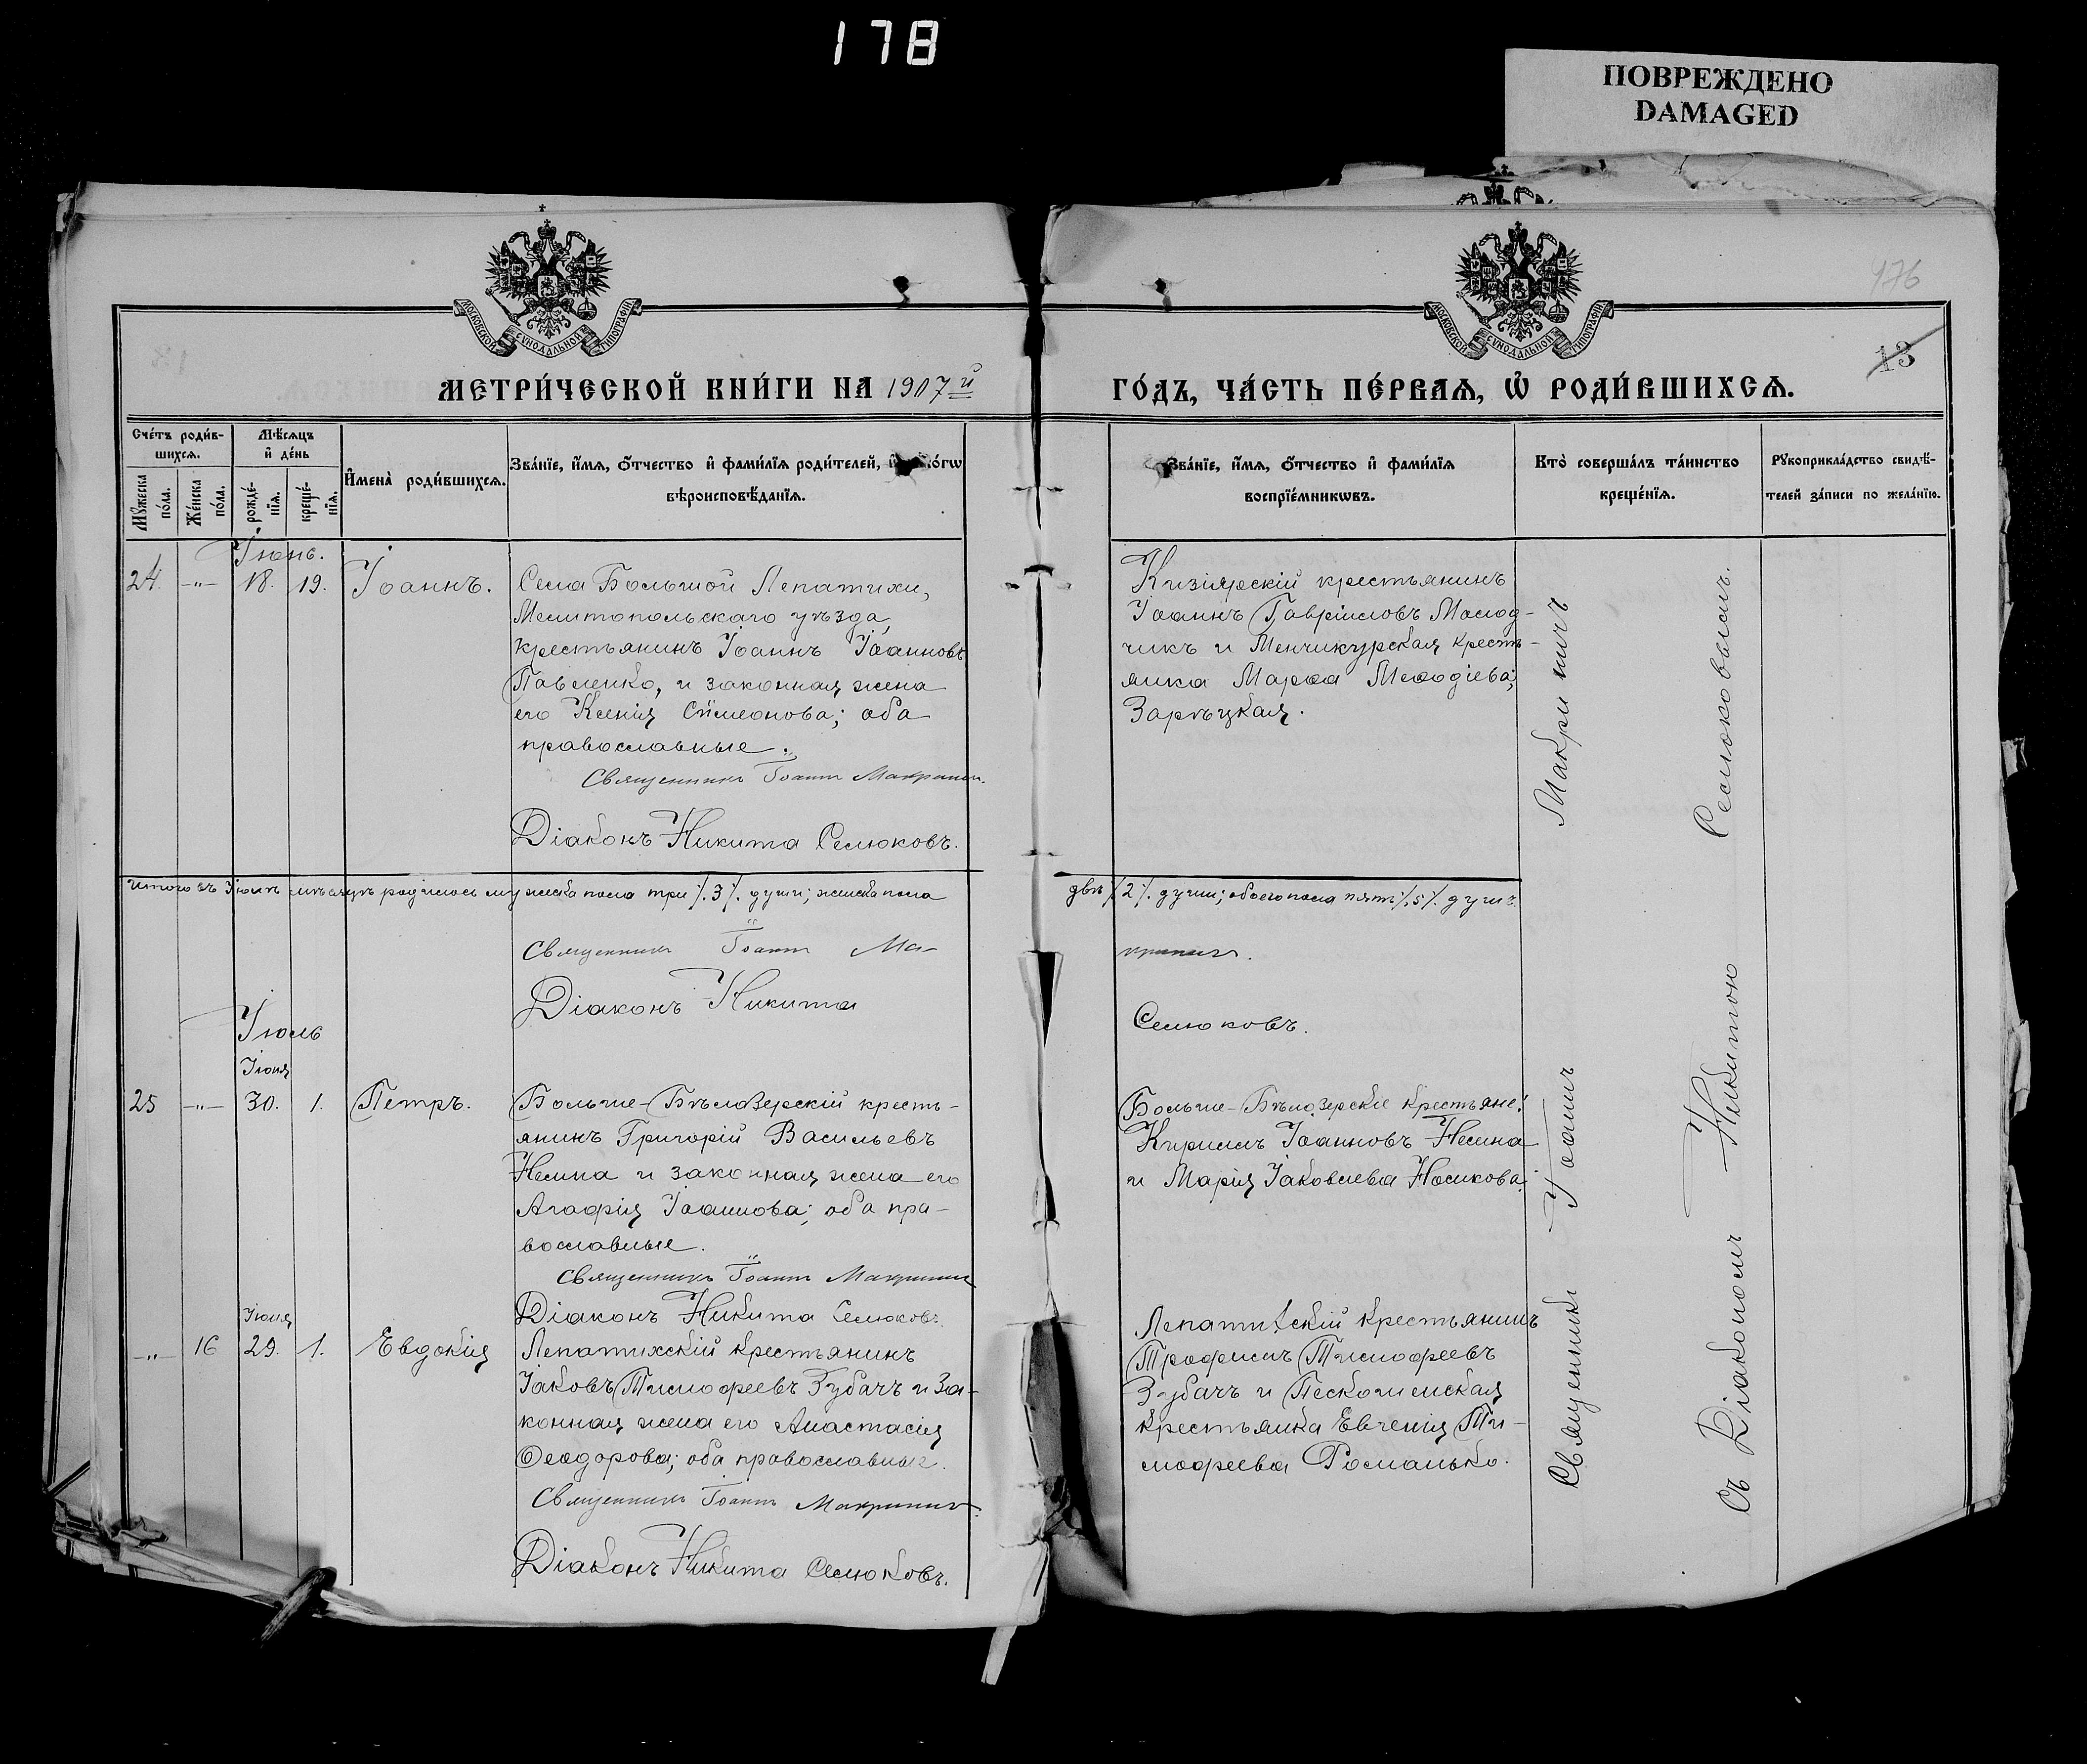 178
ПОВРЕЖДЕНО
DAMAGED
МОСКОВСКОЙ СѴНОДАЛЬНОЙ ТИПОГРАФІИ
МОСКОВСКОЙ СѴНОДАЛЬНОЙ ТИПОГРАФІИ
976
13
МЕТРИ́ЧЕСКОЙ КНИ́ГИ НА 1907й
ГО́ДЪ, ЧА́СТЬ ПЕ́РВАѦ, Ѡ҆ РОДИ́ВШИХСѦ.
Сче́тъ роди́в-
шихсѧ.
Мꙋ́жеска
по́ла.
Же́нска
по́ла.
Мѣ́сѧцъ
и҆ де́нь
рожде́-
нїѧ.
креще́-
нїѧ.
И҆мена̀ роди́вшихсѧ.
Зва́нїе, и҆́мѧ, ѻ҆́тчество и҆ фами́лїѧ роди́телей,
вѣроисповѣ́данїѧ.
Зва́нїе, и҆́мѧ, ѻ҆́тчество и҆ фами́лїѧ
воспрїе́мникѡвъ.
Кто̀ соверша́лъ та́инство
креще́нїѧ.
Рꙋкоприкла́дство свидѣ́-
телей за́писи по жела́нїю.
Іюнь.
24. —"— 18. 19. Іоаннъ.
Села Большой Лепатихи,
Мелитопольскаго уѣзда,
крестьянинъ Іоаннъ Іоанновъ
Павленко, и законная жена
его Ксенія Сѵмеонова; оба
православные.
Священникъ Іоаннъ Макринич.
Діаконъ Никита Селюковъ.
Кизіярскій крестьянинъ
Іоаннъ Гавріиловъ Молод-
чикъ и Менчикурская кресть-
янка Марѳа Меѳодіева
Зарѣцкая.
Итого въ Іюнѣ мѣсяцѣ родилось мужеска пола три /.3/. души; женска пола
двѣ /.2/. души; обоего пола пять /.5/. душъ.
Священникъ Іоаннъ Ма-
кринич.
Діаконъ Никита
Селюковъ.
Іюль
Іюня
25 —"— 30. 1. Петръ.
Больше-Бѣлозерскій кресть-
янинъ Григорій Васильевъ
Несина и законная жена его
Агафія Іоаннова; оба пра-
вославные.
Священникъ Іоаннъ Макринич
Діаконъ Никита Селюковъ.
Больше-Бѣлозерскіе крестьяне:
Кириллъ Іоанновъ Несина
и Марія Іаковлева Носикова.
Іюня
—"— 16 29. 1. Евдокія
Лепатихскій крестьянинъ
Іаковъ Тимоѳеевъ Зубачъ и за-
конная жена его Анастасія
Ѳеодорова; оба православные.
Священникъ Іоаннъ Макринич.
Діаконъ Никита Селюковъ.
Лепатихскій крестьянинъ
Трофимъ Тимоѳеевъ
Зубачъ и Пескошинская
крестьянка Евгенія Ти-
моѳеева Романько.
Священникъ Іоаннъ Макриничъ
съ Діакономъ Никитою Селюковымъ.